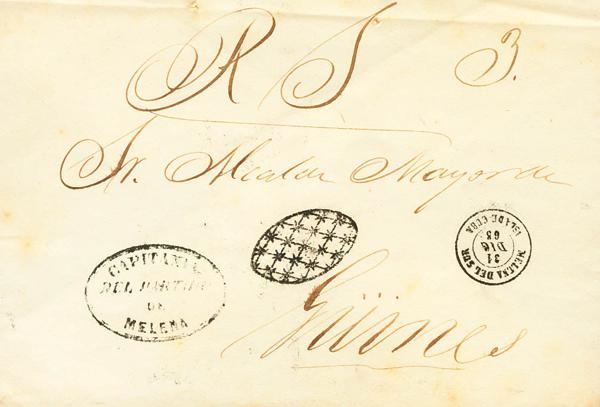 R S 3.
Sr. Alcalde Mayor de
Güines
CAPITANIA
DEL PARTIDO
DE
MELENA
MELENA DEL SUR
31
DIC
63
ISLA DE CUBA